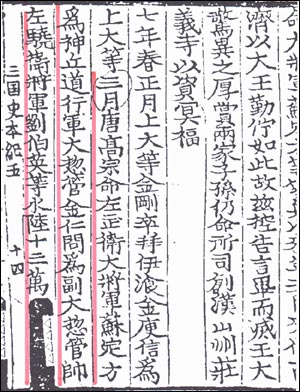 濟以大王勤佇如此故玆控告言畢而滅王大
驚異之厚賞兩家子孫仍命所司創漢山州莊
義寺以資冥福
七年春正月上大等金剛卒拜伊飡金庾信爲
上大等三月唐高宗命左武衛大將軍蘇定方
爲神丘道行軍大惣管金仁問爲副大惣管帥
左驍衛將軍劉伯英等水陸十三萬
三国史本紀五 十四